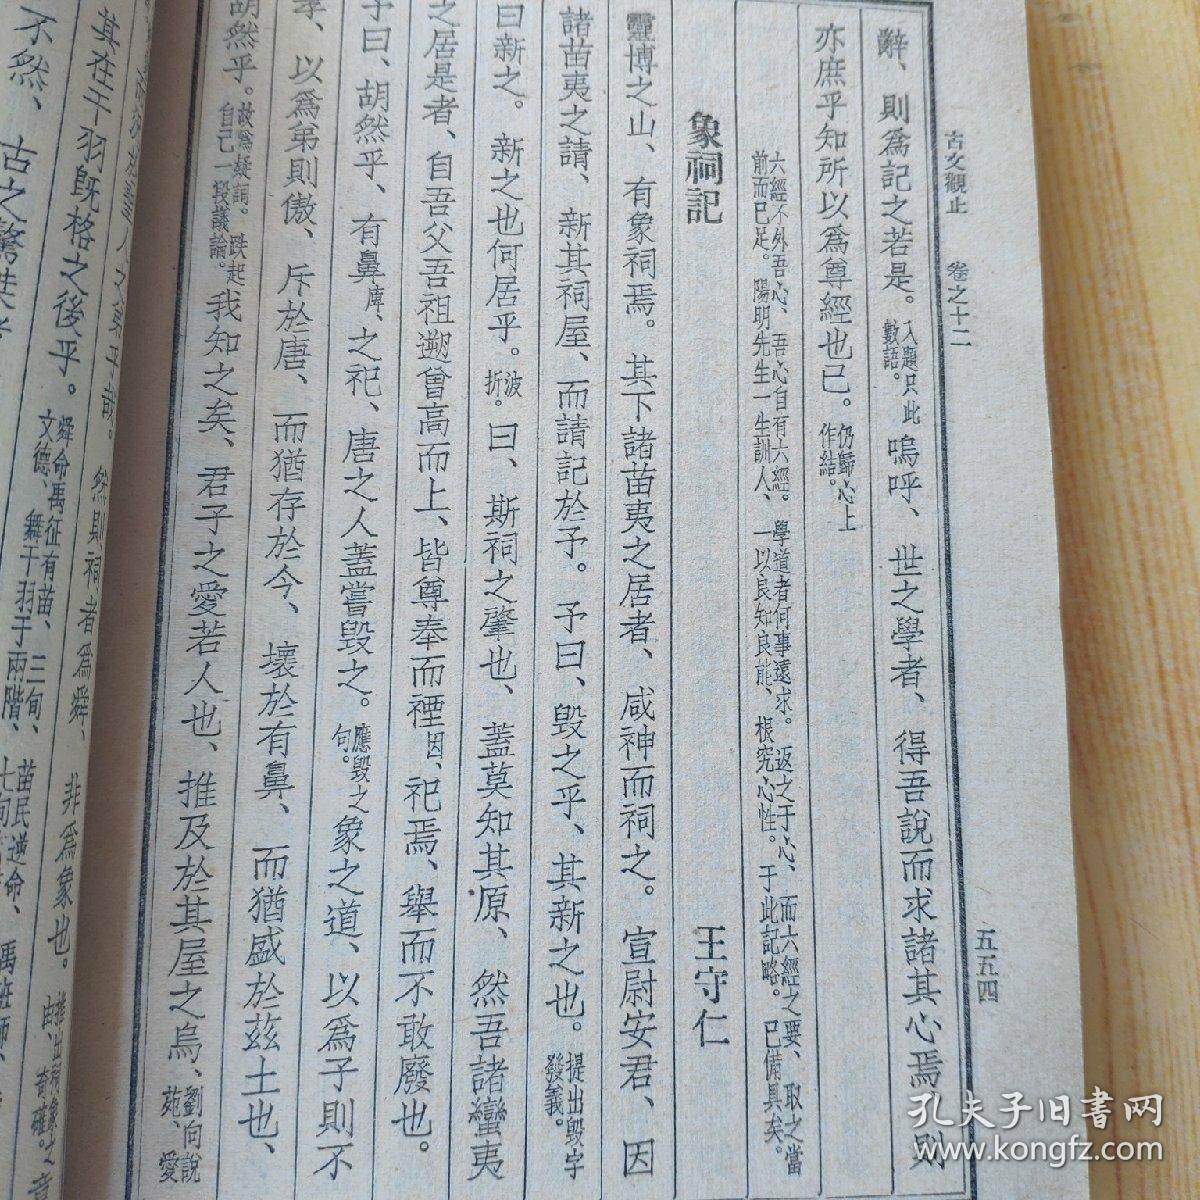 古文觀止　卷之十二　五五四
辭、則爲記之若是。入題只此數語。嗚呼、世之學者、得吾說而求諸其心焉、則
亦庶乎知所以爲尊經也已。仍歸心上作結。
六經不外吾心、吾心自有六經。學道者何事遠求。返之于心、而六經之要、取之當
前而已足。陽明先生一生訓人、一以良知良能、根究心性。于此記略。已備具矣。
象祠記　王守仁
靈博之山、有象祠焉。其下諸苗夷之居者、咸神而祠之。宣尉安君、因
諸苗夷之請、新其祠屋、而請記於予。予曰、毀之乎、其新之也。提出毀字發義。
曰新之。新之也何居乎。波折。曰、斯祠之肇也、蓋莫知其原、然吾諸蠻夷
之居是者、自吾父吾祖遡曾高而上、皆尊奉而禋因、祀焉、舉而不敢廢也。
予曰、胡然乎、有鼻庳、之祀、唐之人蓋嘗毀之。應毀之句。象之道、以爲子則不
孝、以爲弟則傲、斥於唐、而猶存於今、壞於有鼻、而猶盛於茲土也、
胡然乎。故爲疑詞。跌起自己一段議論。我知之矣、君子之愛若人也、推及於其屋之烏、劉向說苑、愛
然則祠者爲舜、非爲象也。推出祠象之由奇確。意
其在干羽既格之後乎。舜命禹征有苗、三旬、苗民逆命、禹班師、文德、舞干羽于兩階、七旬
不然、古之驁桀者
孔夫子旧书网
www.kongfz.com